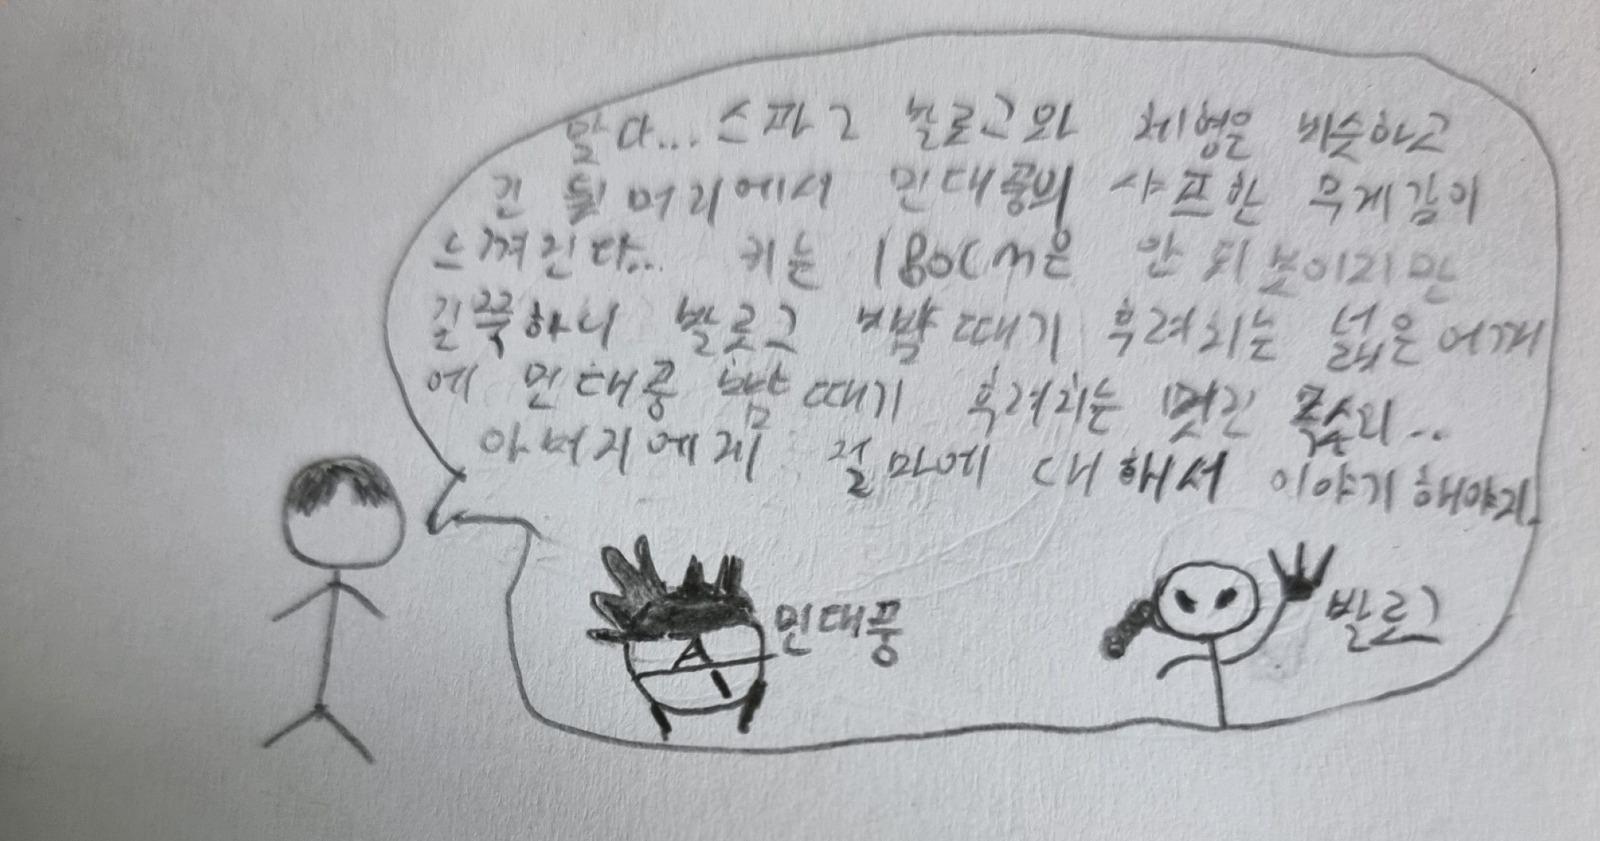 맞다... 스파 그 발로그와 체형은 비슷하고
긴 뒷머리에서 민대풍의 샤프한 무게감이
느껴진다... 키는 180cm은 안 되 보이지만
길쭉하니 발로그 뺨때기 후려치는 넓은 어깨
에 민대풍 뺨때기 후려치는 멋진 목소리...
아버지에게 걸마에 대해서 이야기해야지.
민대풍
발로그